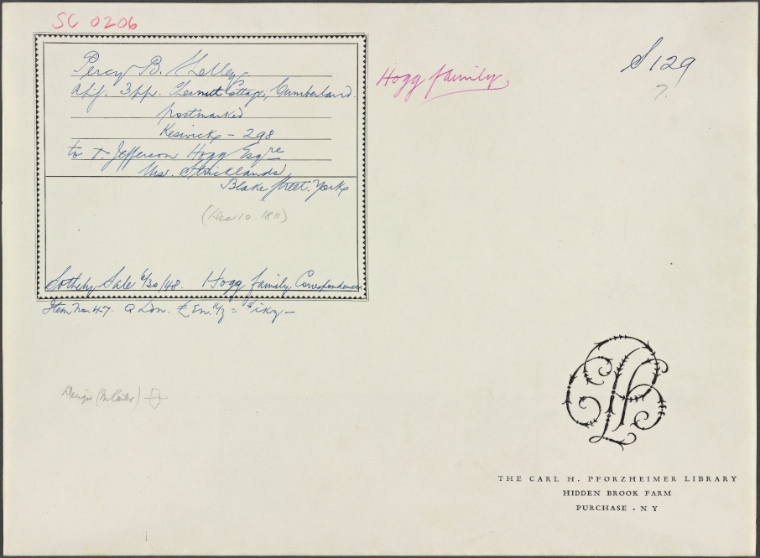 SC 0206
Percy B. Shelley
a.l.s. 3pp. Chesnutt Cottage, Cumberland.
postmarked
Keswick - 298
to T. Jefferson Hogg Esqre
Mrs. Stricklands,
Blake Street, York
(Dec 10. 1811)
Sotheby Sale 6/30/48. Hogg family Correspondence
Item No. 47.
Design
Hogg family
S 129
7.
THE CARL H. PFORZHEIMER LIBRARY
HIDDEN BROOK FARM
PURCHASE · N Y